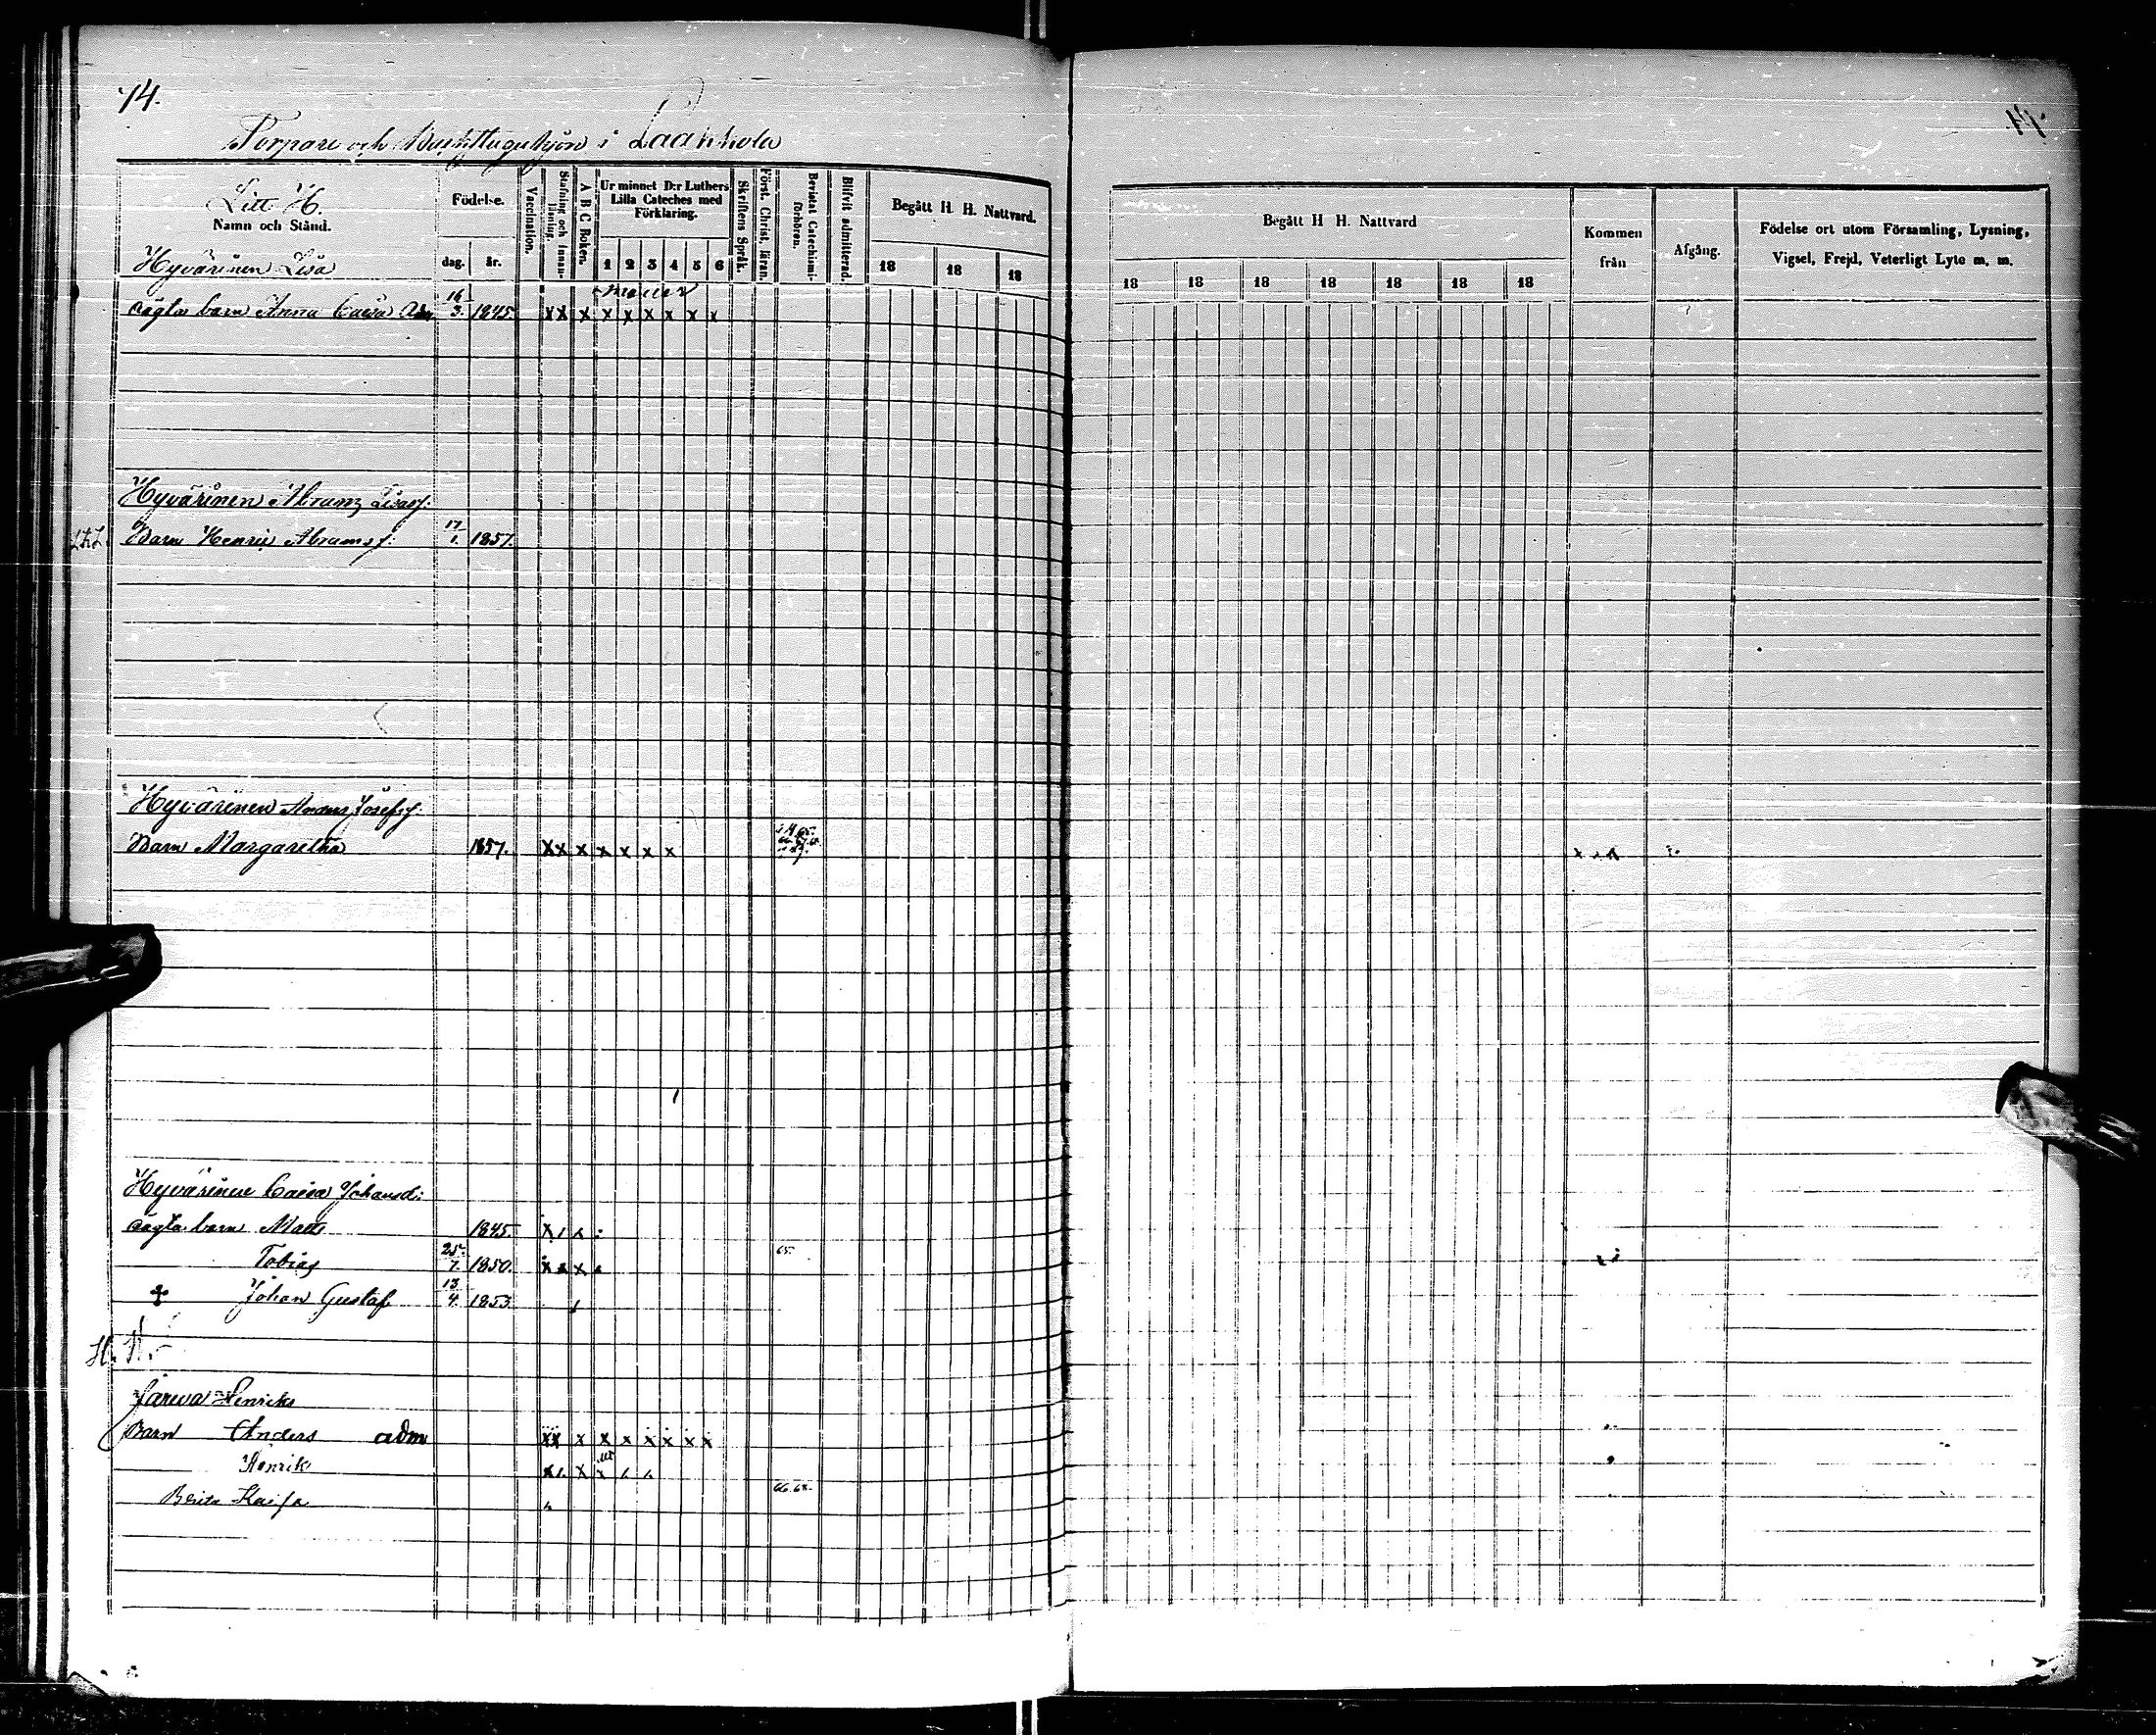 14.
Torpare och i Laakkola
Litt. H.
Namn och Stånd.
Födelse.
dag.
år.
Vaccination.
Stafning och Innanläsning.
A B C Boken.
Ur minnet D:r Luthers Lilla Cateches med Förklaring.
1 2 3 4 5 6
Skriftens Språk.
Först. Christ. läran.
Bevistat Catechismiförhören.
Blifvit admitterad.
Begått H. H. Nattvard.
18 18 18
Begått H H. Nattvard
18 18 18 18 18 18 18
Kommen från
Afgång.
Födelse ort utom Församling, Lysning,
Vigsel, Frejd, Veterligt Lyte m. m.
Hyvärinen Lisa
oägta barn Anna Caisa Adm 16/3. 1845. x x x x x x x x x
Hyvärinen Abram
Barn Henric Abramsf: 17/1. 1857.
Hyvärinen Anders Josefsf:
Barn Margaretha 1857. x x x x x x x
Hyvärinen Caisa Johansd:
oägta barn Matts 1845.
Tobias 25/7. 1850. 65.
Johan Gustaf 13/4. 1853
Henrik
Barn Anders adm x x x x x x x x x
Henrik
Brita Kaisa